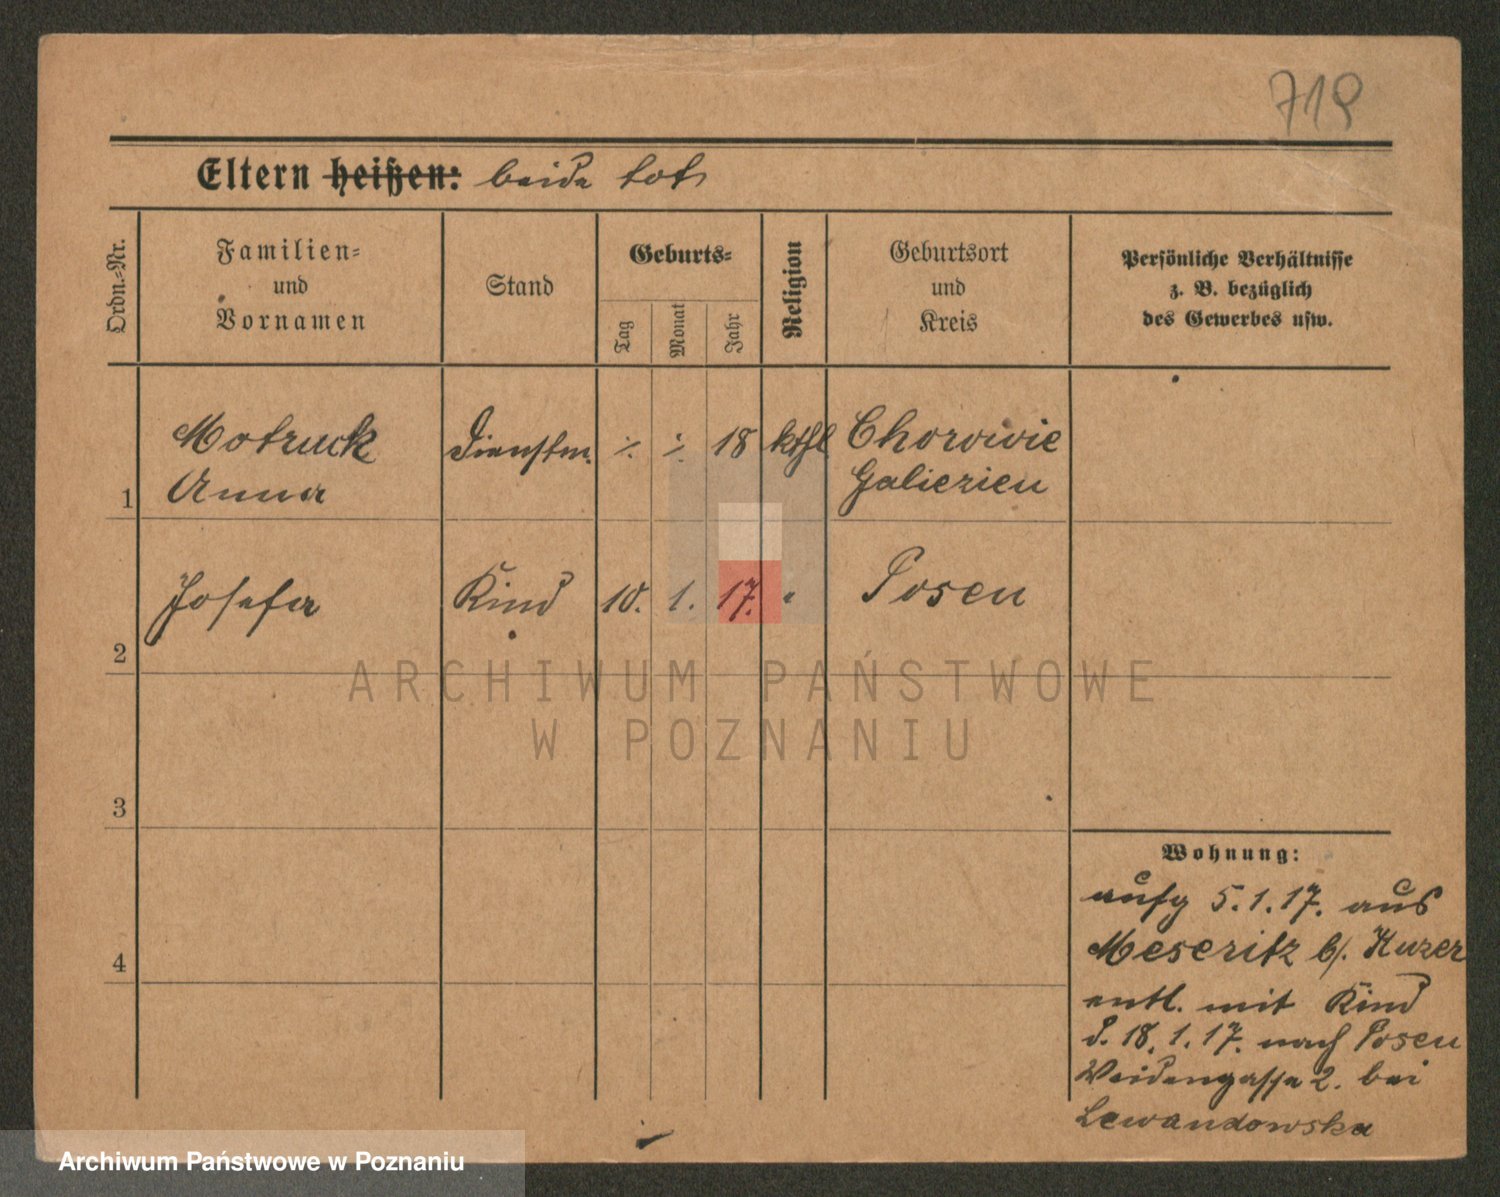 719
Eltern heißen: beide tot
Ordn.-Nr.
Familien-
und
Vornamen
Stand
Geburts-
Tag
Monat
Jahr
Religion
Geburtsort
und
Kreis
Persönliche Verhältnisse
z. B. bezüglich
des Gewerbes usw.
1 Motruck Dienstm. ./. ./. 18 kthl Chorowie
Anna Galiezien
2 Josefa Kind 10. 1. 17. " Posen
3
4
Wohnung:
aufg 5.1.17. aus
Meseritz b/. Kuzer
entl. mit Kind
d. 18.1.17. nach Posen
Weidengasse 2. bei
Lewandowska
ARCHIWUM PAŃSTWOWE
W POZNANIU
Archiwum Państwowe w Poznaniu